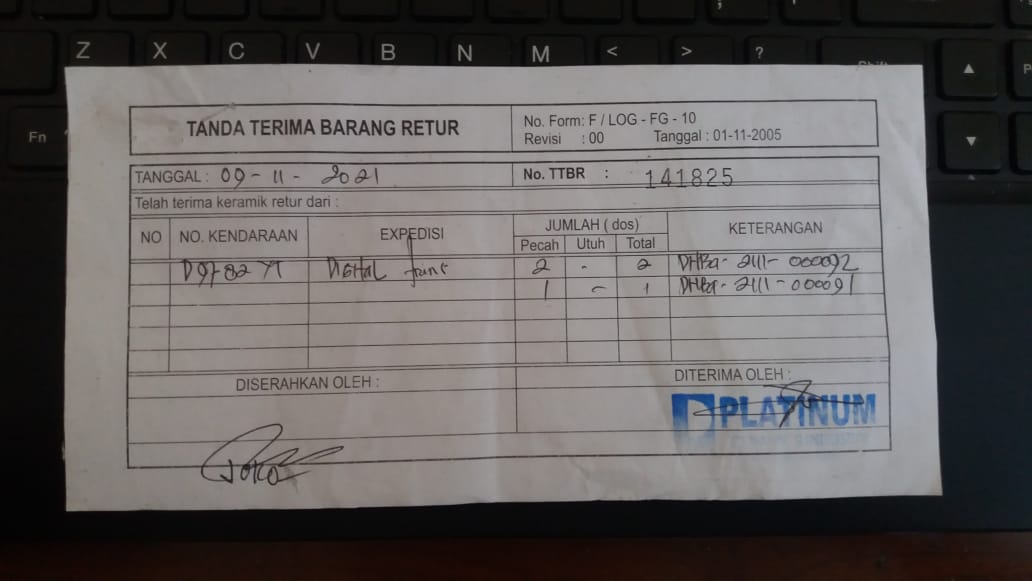 Z X C V B N M < > ?
Fn
TANDA TERIMA BARANG RETUR
No. Form: F / LOG - FG - 10
Revisi : 00 Tanggal : 01-11-2005
TANGGAL : 09 - 11 - 2021
No. TTBR : 141825
Telah terima keramik retur dari :
NO NO. KENDARAAN EXPEDISI JUMLAH ( dos ) KETERANGAN
Pecah Utuh Total
D 9782 YT Digital 2 - 2 DHBa - 2111 - 000092
1 - 1 DHBa - 2111 - 000091
DISERAHKAN OLEH : DITERIMA OLEH :
PLATINUM
Joko